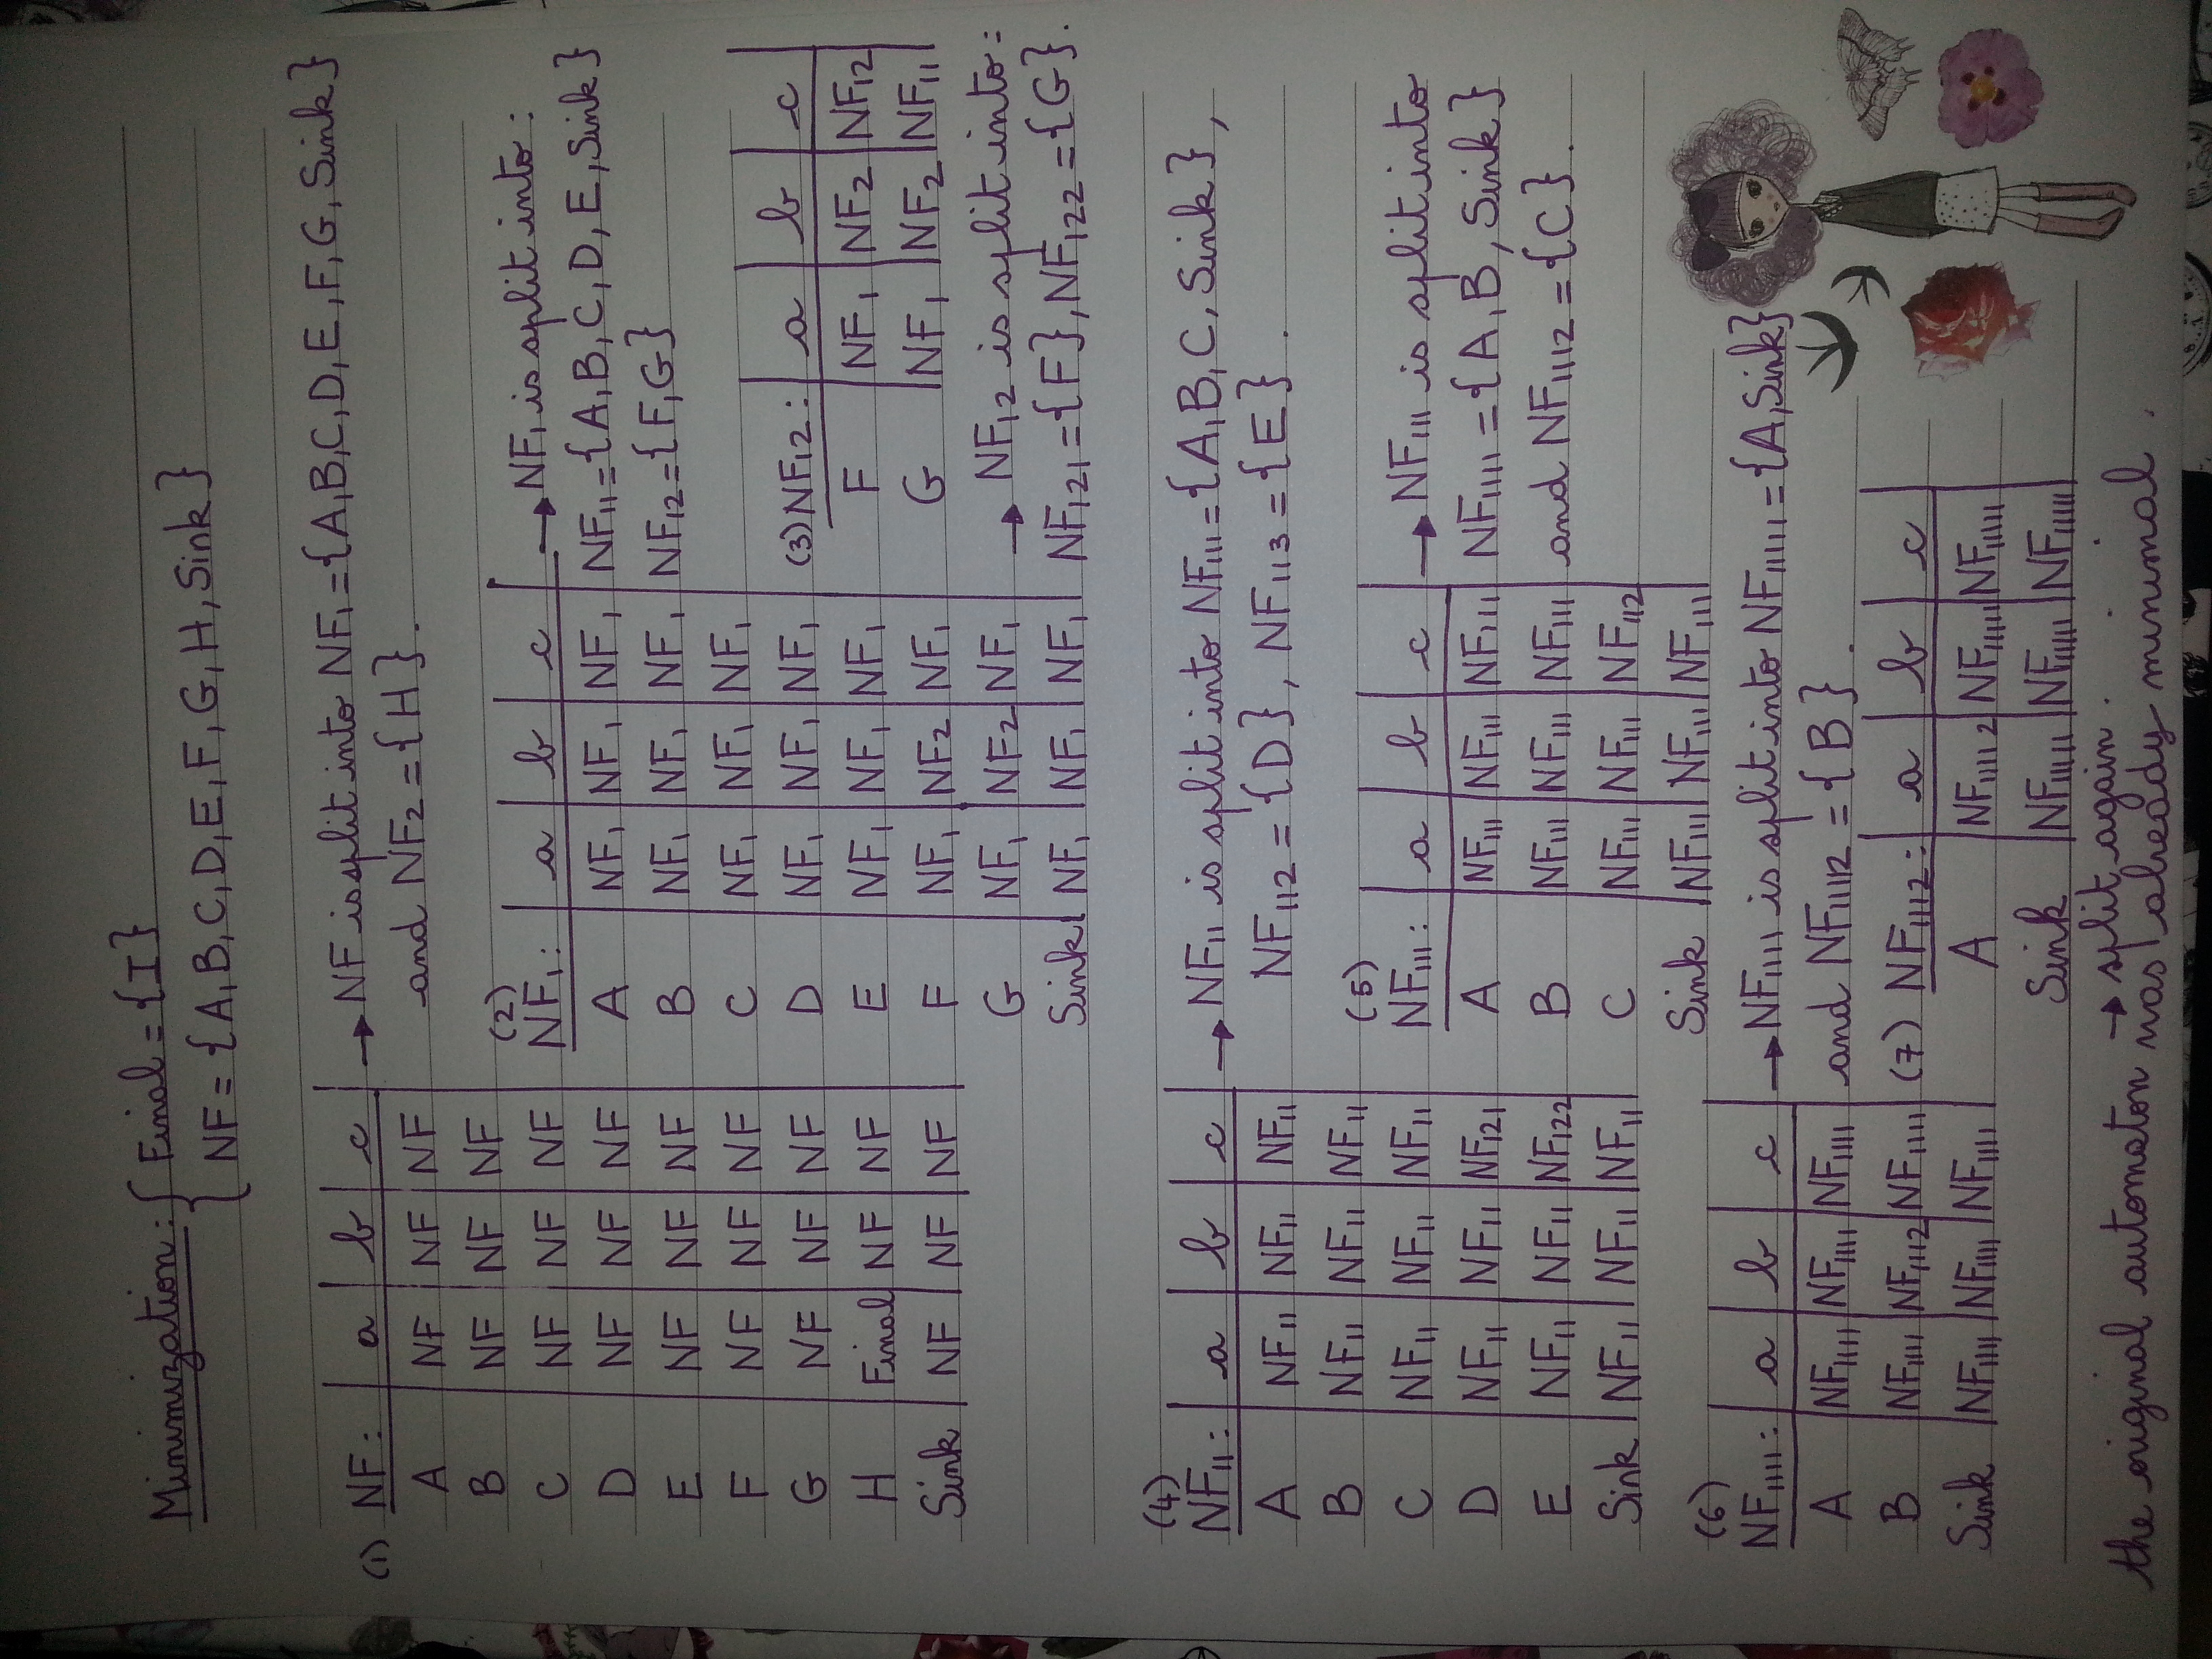 Minimization: { Final = {I}
{ NF = {A,B,C,D,E,F,G,H,Sink}
(1) NF: | a | b | c
A | NF | NF | NF
B | NF | NF | NF
C | NF | NF | NF
D | NF | NF | NF
E | NF | NF | NF
F | NF | NF | NF
G | NF | NF | NF
H | Final | NF | NF
Sink | NF | NF | NF
→ NF is split into NF₁ = {A,B,C,D,E,F,G,Sink}
and NF₂ = {H}.
(2)
NF₁: | a | b | c
A | NF₁ | NF₁ | NF₁
B | NF₁ | NF₁ | NF₁
C | NF₁ | NF₁ | NF₁
D | NF₁ | NF₁ | NF₁
E | NF₁ | NF₁ | NF₁
F | NF₁ | NF₂ | NF₁
G | NF₁ | NF₂ | NF₁
Sink | NF₁ | NF₁ | NF₁
→ NF₁ is split into:
NF₁₁ = {A,B,C,D,E,Sink}
NF₁₂ = {F,G}
(3) NF₁₂: | a | b | c
F | NF₁ | NF₂ | NF₁₂
G | NF₁ | NF₂ | NF₁₁
→ NF₁₂ is split into:
NF₁₂₁ = {F}, NF₁₂₂ = {G}.
(4)
NF₁₁: | a | b | c
A | NF₁₁ | NF₁₁ | NF₁₁
B | NF₁₁ | NF₁₁ | NF₁₁
C | NF₁₁ | NF₁₁ | NF₁₁
D | NF₁₁ | NF₁₁ | NF₁₂₁
E | NF₁₁ | NF₁₁ | NF₁₂₂
Sink | NF₁₁ | NF₁₁ | NF₁₁
→ NF₁₁ is split into NF₁₁₁ = {A,B,C,Sink},
NF₁₁₂ = {D}, NF₁₁₃ = {E}.
(5)
NF₁₁₁: | a | b | c
A | NF₁₁₁ | NF₁₁₁ | NF₁₁₁
B | NF₁₁₁ | NF₁₁₁ | NF₁₁₁
C | NF₁₁₁ | NF₁₁₁ | NF₁₁₂
Sink | NF₁₁₁ | NF₁₁₁ | NF₁₁₁
→ NF₁₁₁ is split into
NF₁₁₁₁ = {A,B,Sink}
and NF₁₁₁₂ = {C}.
(6)
NF₁₁₁₁: | a | b | c
A | NF₁₁₁₁ | NF₁₁₁₁ | NF₁₁₁₁
B | NF₁₁₁₁ | NF₁₁₁₂ | NF₁₁₁₁
Sink | NF₁₁₁₁ | NF₁₁₁₁ | NF₁₁₁₁
→ NF₁₁₁₁ is split into NF₁₁₁₁₁ = {A,Sink}
and NF₁₁₁₁₂ = {B}.
(7) NF₁₁₁₁₂: | a | b | c
A | NF₁₁₁₁₂ | NF₁₁₁₁₁ | NF₁₁₁₁₁
Sink | NF₁₁₁₁₁ | NF₁₁₁₁₁ | NF₁₁₁₁₁
→ split again.
the original automaton was already minimal.